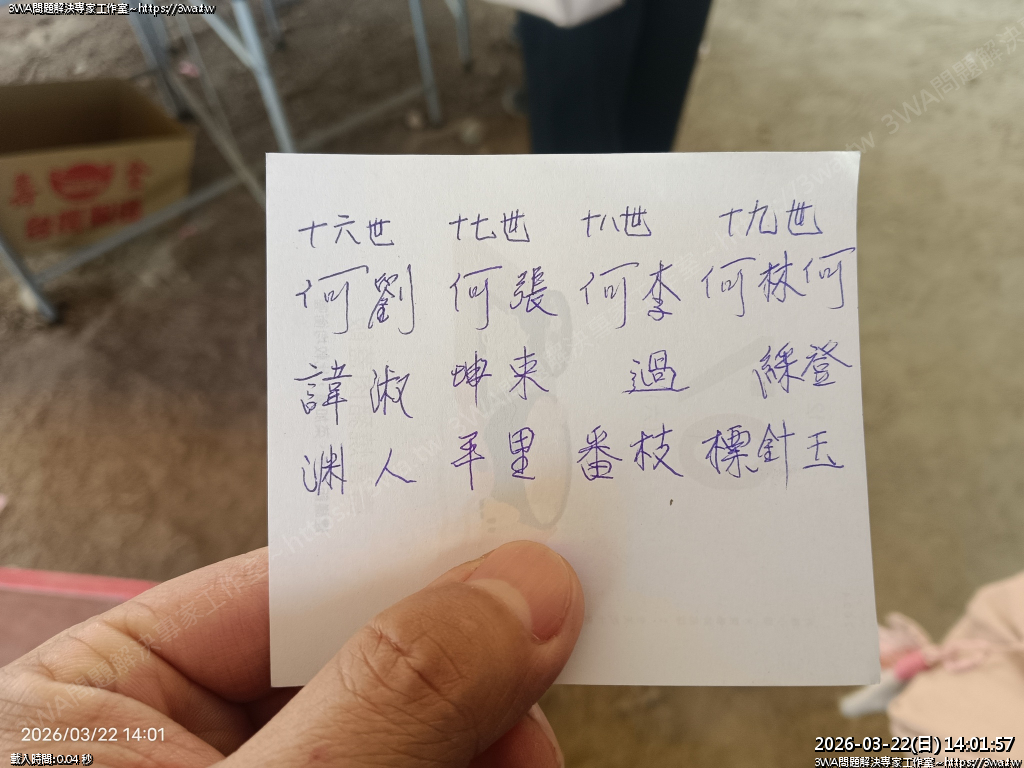 3WA問題解決專家工作室~https://3wa.tw
十六世 十七世 十八世 十九世
何 劉 何 張 何 李 何 林 何
諱 淑 坤 束 過 綵 登
渊 人 平 里 番 枝 標 針 玉
2026/03/22 14:01
載入時間:0.04 秒
2026-03-22(日) 14:01:57
3WA問題解決專家工作室~https://3wa.tw